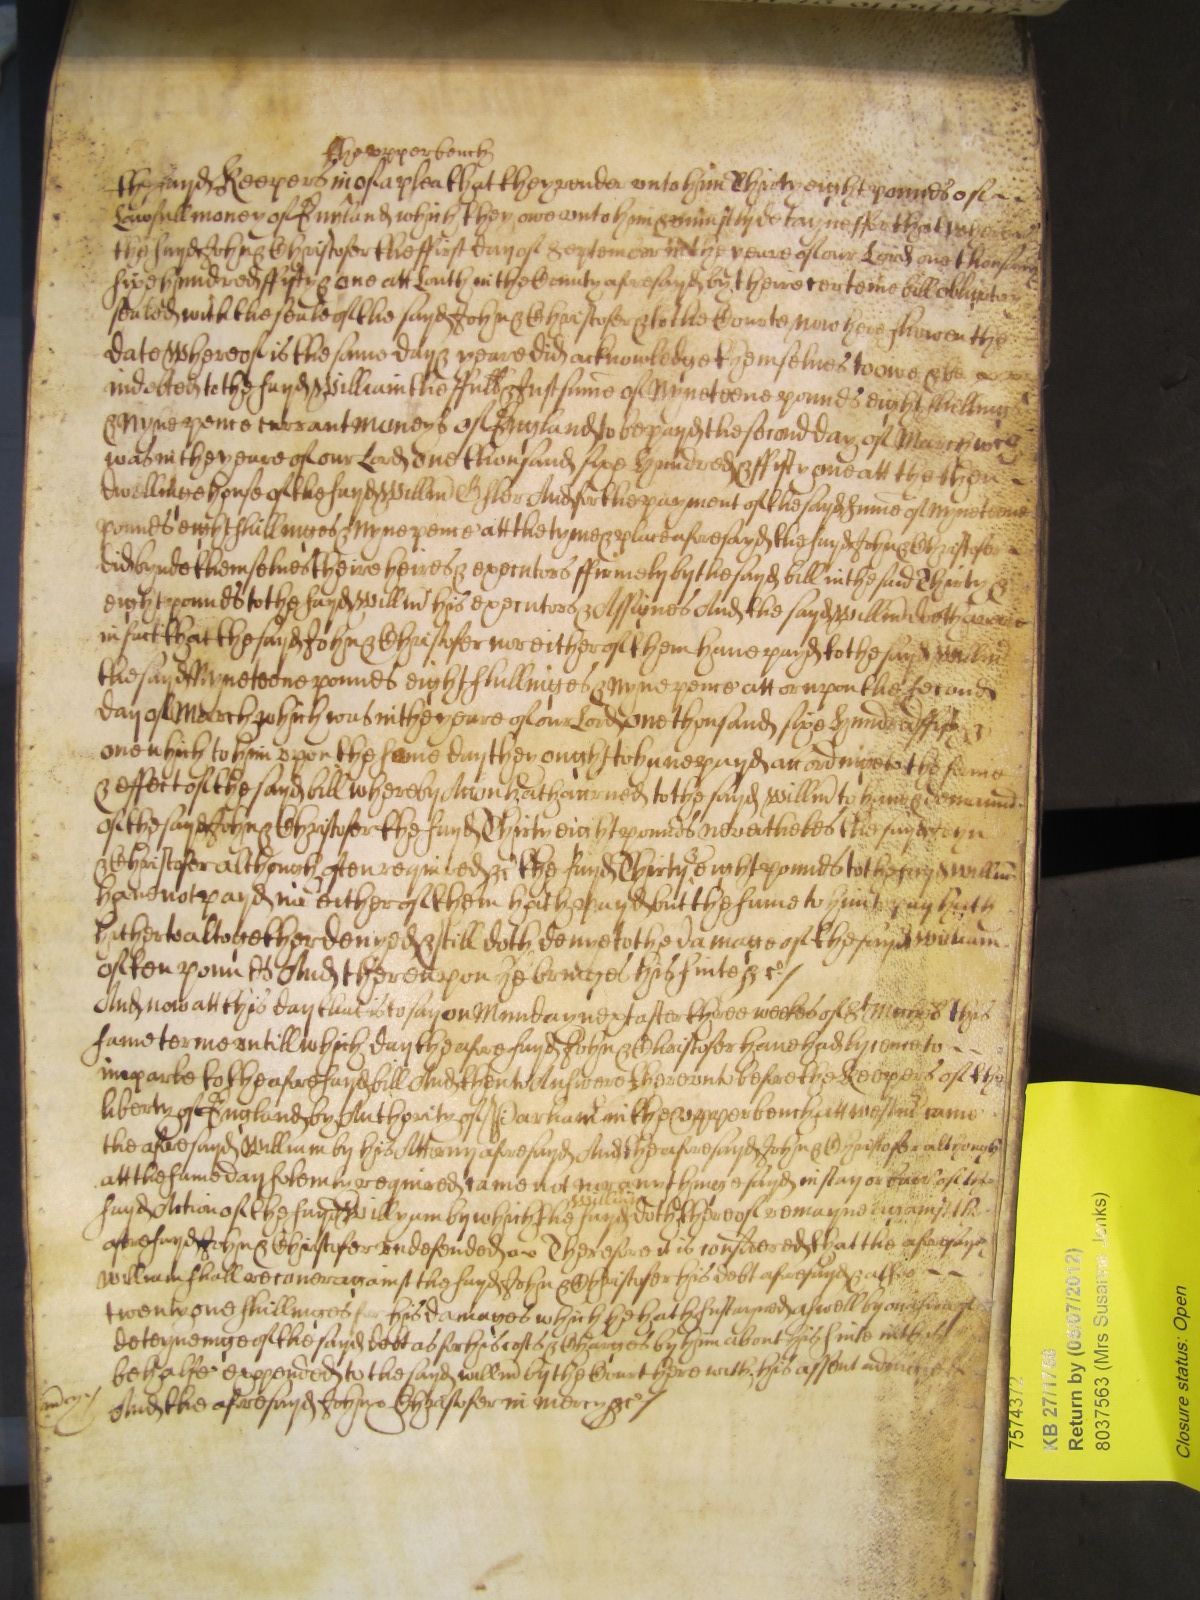 the upper bench
the sayd Keepers in of a plea that they render unto him Thirty eight pounds of
Lawfull money of England which they owe unto him & uniustly detayne ffor that whereas
the sayd John & Christofer the ffirst day of September in the yeare of our Lord one thousand
sixe hundred ffifty & one att Louth in the County aforesayd by theire certeine bill obligatory
sealed with the seales of the sayd John & Christofer & to the Courte now here showen the
date whereof is the same day & yeare did acknowledge themselves to owe & be
indebted to the sayd William the ffull & Just sume of Nyneteene pounds eight shillings
& Nyne pence currant moneys of England to be payd the second day of March wch
was in the yeare of our Lord one thousand sixe hundred & ffifty one att the then
dwellinge house of the sayd Willm And for the payment of the sayd Sume of Nyneteene
pounds eight shillinges & Nyne pence att the tyme & place aforesayd the sayd John & Christofer
did bynde themselves theire heires & executors ffirmely by the sayd bill in the said Thirty &
eight pounds to the sayd Willm his executors & Assignes And the sayd Willm doth averre
in fact that the sayd John & Christofer nor either of them have payd to the sayd Willm
the sayd Nyneteene pounds eight shillinges & Nyne pence att or upon the second
day of March which was in the yeare of our Lord one thousand sixe hundred ffifty &
one which to him upon the same day they ought to have payd accordinge to the forme
& effect of the sayd bill whereby Accon hath accrued to the sayd Willm to have & demaund
of the sayd John & Christofer the sayd Thirty eight pounds neverthelesse the sayd John
& Christofer although often required &c the sayd Thirty eight pounds to the sayd Willm
have not payd nor either of them hath payd but the same to him to pay hath
hitherto altogether denyed & still doth denye to the damage of the sayd William
of ten pounds And thereupon he bringes his suite &c/
And now att this day that is to say on Munday next after three weekes of St Michs this
same terme untill which day the aforesayd John & Christofer have had lycence to
imparle to the aforesayd bill And then to Answere thereunto before the Keepers of the
liberty of England by Authority of Parliamt in the upper bench att westmr came
the aforesayd William by his Attorny aforesayd And the aforesayd John & Christofer although
att the same day solemnly required came not nor anythinge sayd in stay or barr of the
William
sayd Action of the sayd Willyam by which the sayd doth thereof remayne against the
aforesayd John & Christofer undefended Therefore it is considered that the aforesayd
William shall recover against the sayd John & Christofer his debt aforesayd & alsoe
twenty one shillinges for his damages which he hath sustayned as well by occasion of
deteyneinge of the sayd debt as for his costs & Charges by him about his suite in this
behalfe expended to the sayd Willm by the Court here with his assent adiudged
And the aforesayd John & Christofer in mercy &c/
7574372
KB 27/1/1756
Return by (05/07/2012)
8037563 (Mrs Susanne Jenks)
Closure status: Open